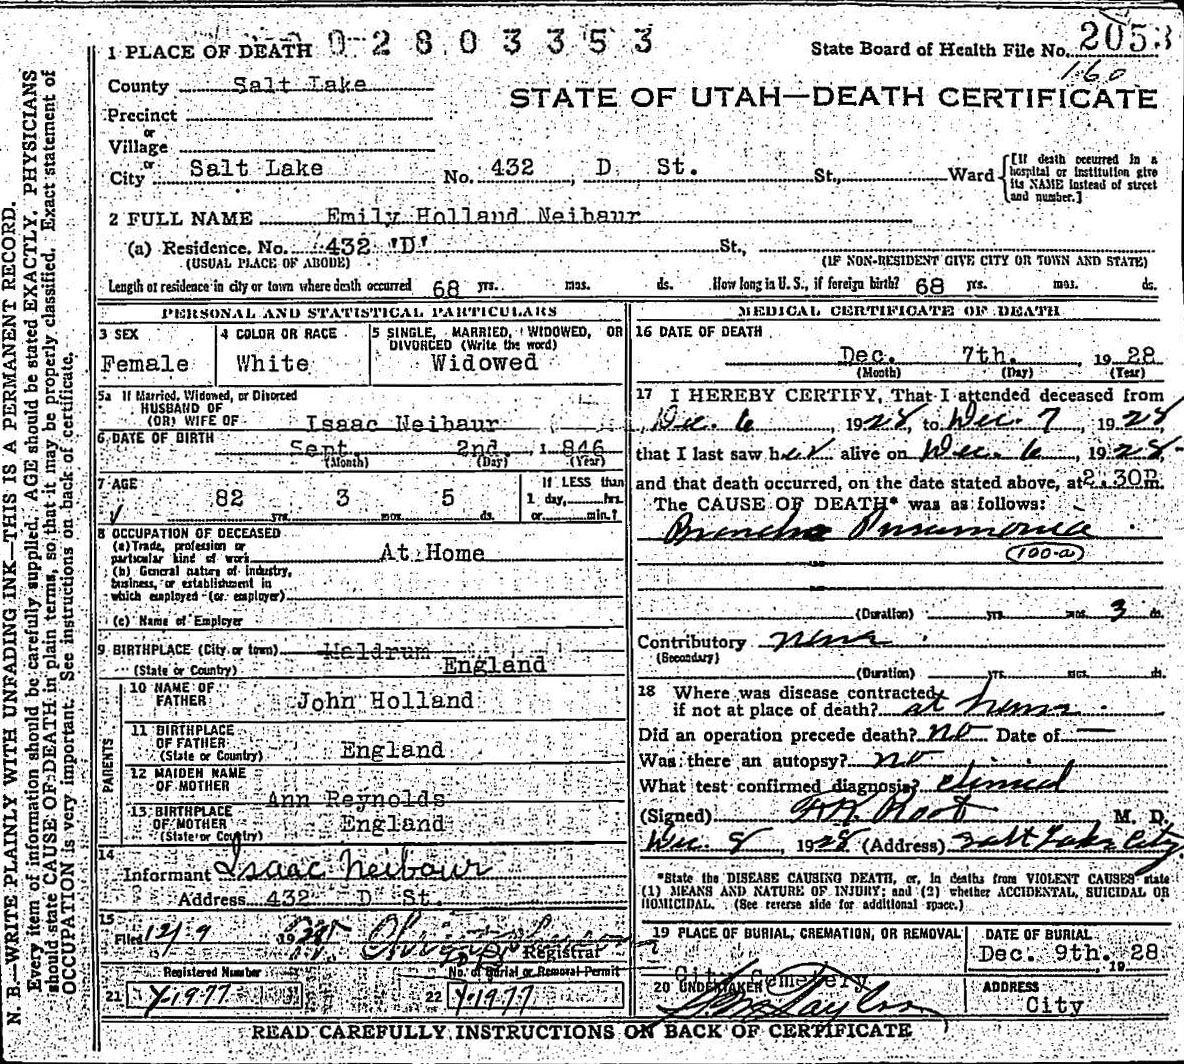 0 2 8 0 3 3 5 3
1 PLACE OF DEATH
State Board of Health File No. 2053
160
County Salt Lake
STATE OF UTAH—DEATH CERTIFICATE
Precinct
or
Village
or
City Salt Lake No. 432 D St. St., Ward
[If death occurred in a hospital or institution give its NAME instead of street and number.]
2 FULL NAME Emily Holland Neibaur
(a) Residence. No. 432 'D' St.,
(USUAL PLACE OF ABODE) (IF NON-RESIDENT GIVE CITY OR TOWN AND STATE)
Length of residence in city or town where death occurred 68 yrs. mos. ds. How long in U. S., if foreign birth? 68 yrs. mos. ds.
PERSONAL AND STATISTICAL PARTICULARS
3 SEX
Female
4 COLOR OR RACE
White
5 SINGLE, MARRIED, WIDOWED, OR DIVORCED (Write the word)
Widowed
5a If Married, Widowed, or Divorced
HUSBAND OF
(OR) WIFE OF Isaac Neibaur
6 DATE OF BIRTH
Sept. 2nd. 1846
(Month) (Day) (Year)
7 AGE
82 yrs. 3 mos. 5 ds.
If LESS than
1 day, hrs.
or min.?
8 OCCUPATION OF DECEASED
(a) Trade, profession or
particular kind of work At Home
(b) General nature of industry,
business, or establishment in
which employed (or employer)
(c) Name of Employer
9 BIRTHPLACE (City or town)
(State or Country) England
PARENTS
10 NAME OF
FATHER John Holland
11 BIRTHPLACE
OF FATHER
(State or Country) England
12 MAIDEN NAME
OF MOTHER
Ann Reynolds
13 BIRTHPLACE
OF MOTHER England
(State or Country)
14
Informant Isaac Neibaur
Address 432 D St.
15
Filed 12/9 1928
Registrar
Registered Number
21 Y-1977
No. of Burial or Removal Permit
22 Y-1977
MEDICAL CERTIFICATE OF DEATH
16 DATE OF DEATH
Dec. 7th. 1928
(Month) (Day) (Year)
17 I HEREBY CERTIFY, That I attended deceased from
Dec. 6, 1928, to Dec. 7, 1928,
that I last saw her alive on Dec. 6, 1928
and that death occurred, on the date stated above, at 2:30P m.
The CAUSE OF DEATH* was as follows:
Broncho Pneumonia
100-a
(Duration) yrs. mos. 3 ds.
Contributory none
(Secondary)
(Duration) yrs. mos. ds.
18 Where was disease contracted
if not at place of death? at home
Did an operation precede death? no Date of —
Was there an autopsy? no
What test confirmed diagnosis? clinical
(Signed) Root M. D.
Dec. 8, 1928 (Address) Salt Lake City
*State the DISEASE CAUSING DEATH, or, in deaths from VIOLENT CAUSES state
(1) MEANS AND NATURE OF INJURY; and (2) whether ACCIDENTAL, SUICIDAL OR
HOMICIDAL. (See reverse side for additional space.)
19 PLACE OF BURIAL, CREMATION, OR REMOVAL
City Cemetery
DATE OF BURIAL
Dec. 9th. 1928
20 UNDERTAKER
Taylor
ADDRESS
City
READ CAREFULLY INSTRUCTIONS ON BACK OF CERTIFICATE
N. B.—WRITE PLAINLY WITH UNFADING INK—THIS IS A PERMANENT RECORD.
Every item of information should be carefully supplied. AGE should be stated EXACTLY. PHYSICIANS
should state CAUSE OF DEATH in plain terms, so that it may be properly classified. Exact statement of
OCCUPATION is very important. See instructions on back of certificate.